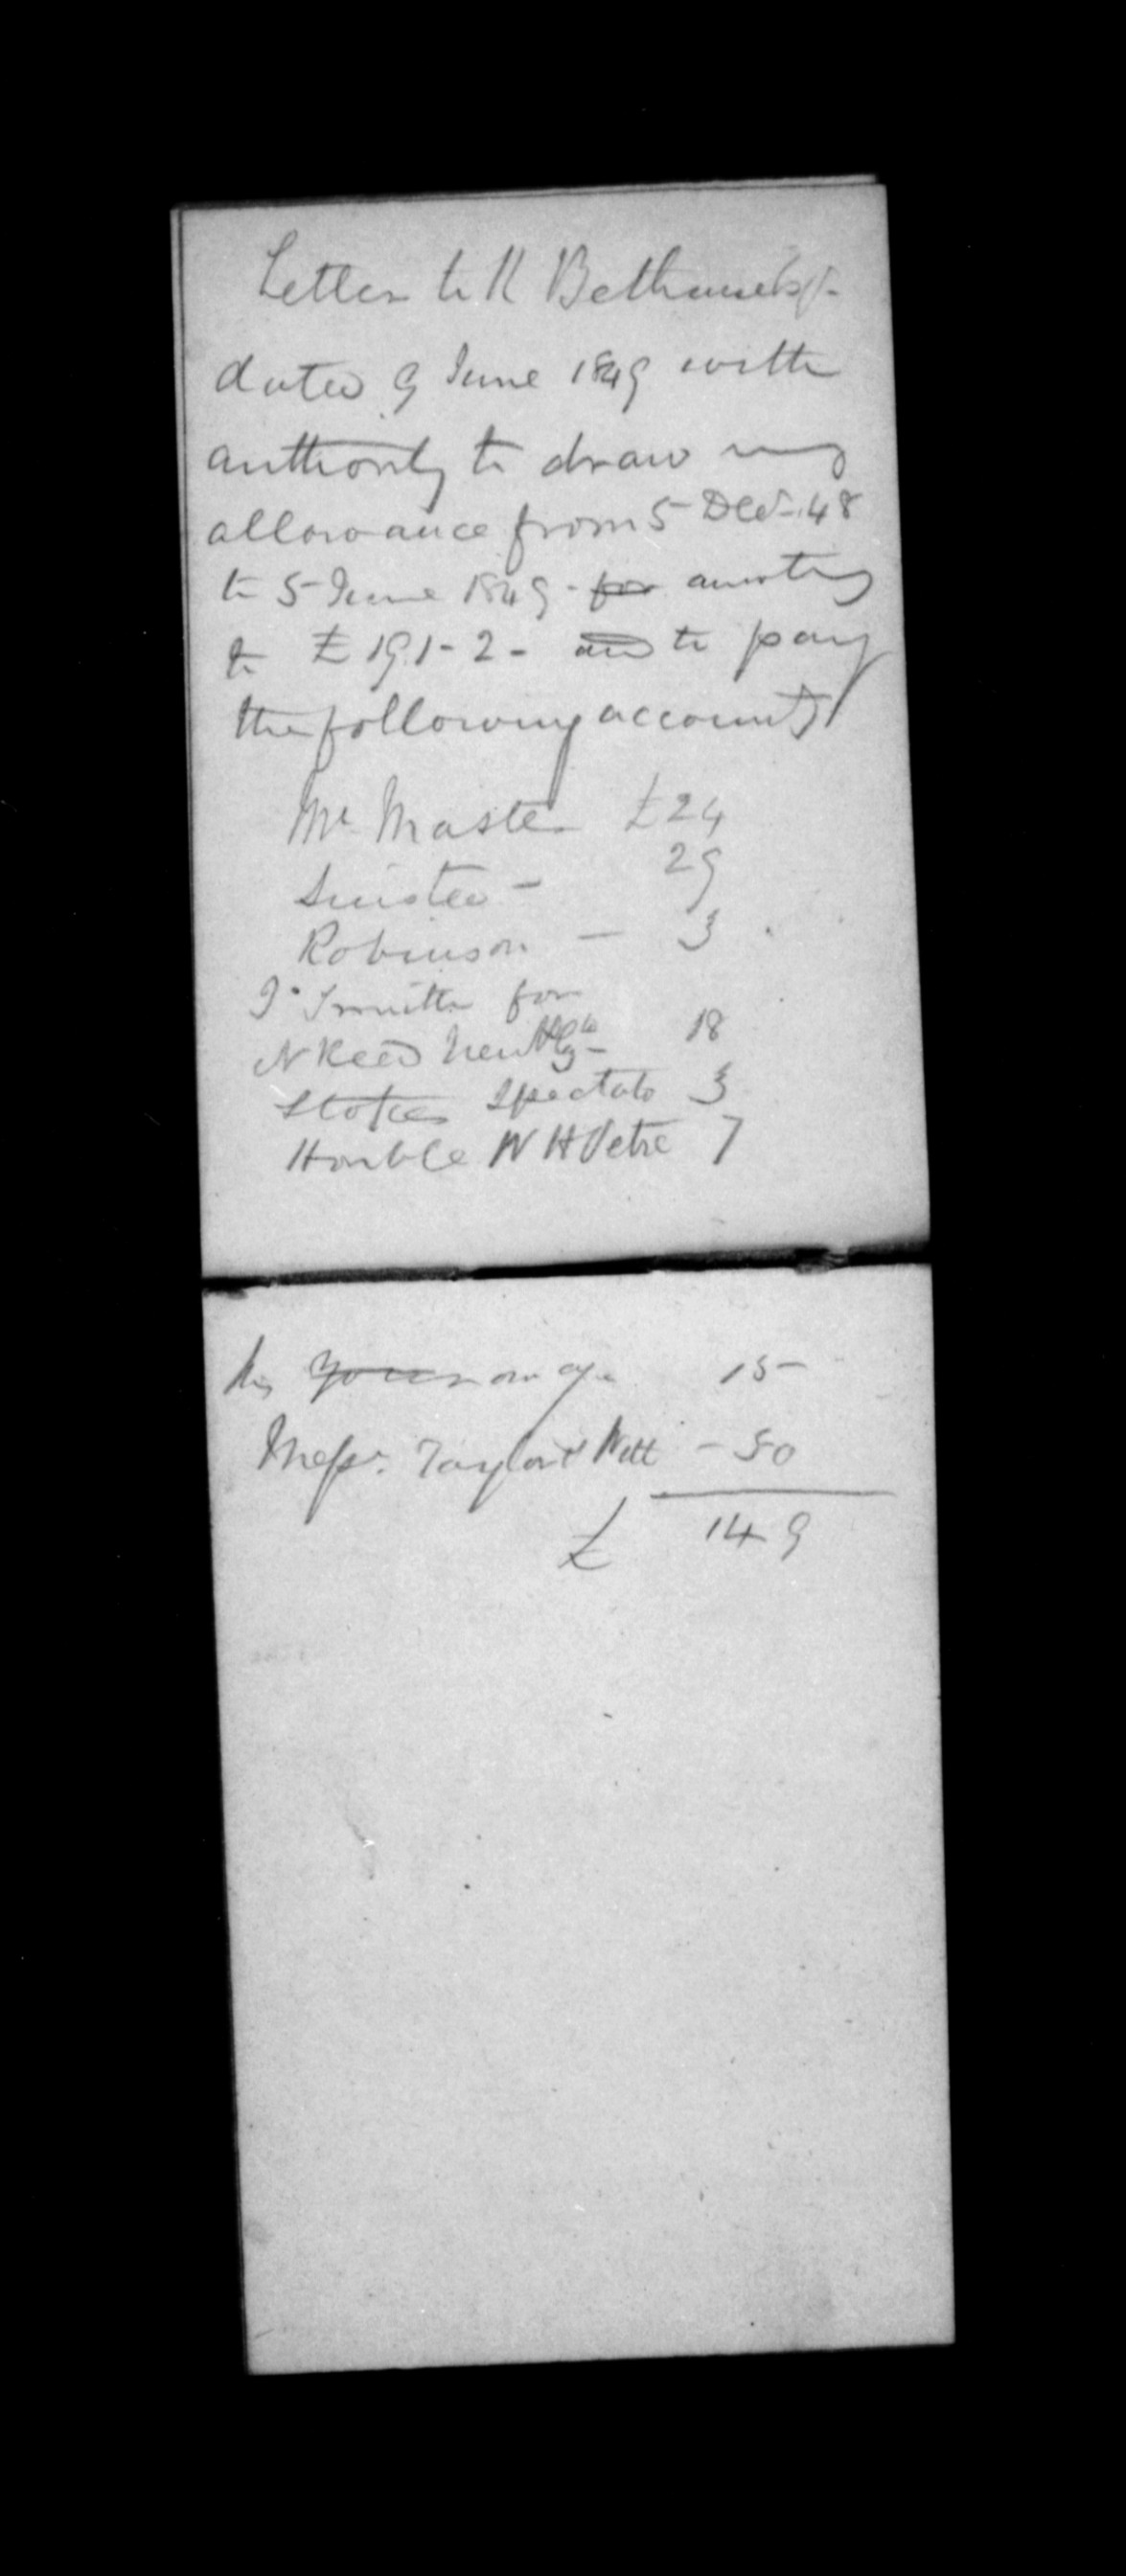 Letter to R Bethune Esqr.
dated 9 June 1849 with
authority to draw my
allowance from 5 Decr. 48
to 5 June 1849 - for amotng
to £191-2- and to pay
the following accounts
Mr Master £24
29
Robinson — 3
Jo Smith for
N Reed 18
Stokes Spectato 3
Honble W H Petre 7
15
Messrs. Taylor & Watt - 50
£ 149